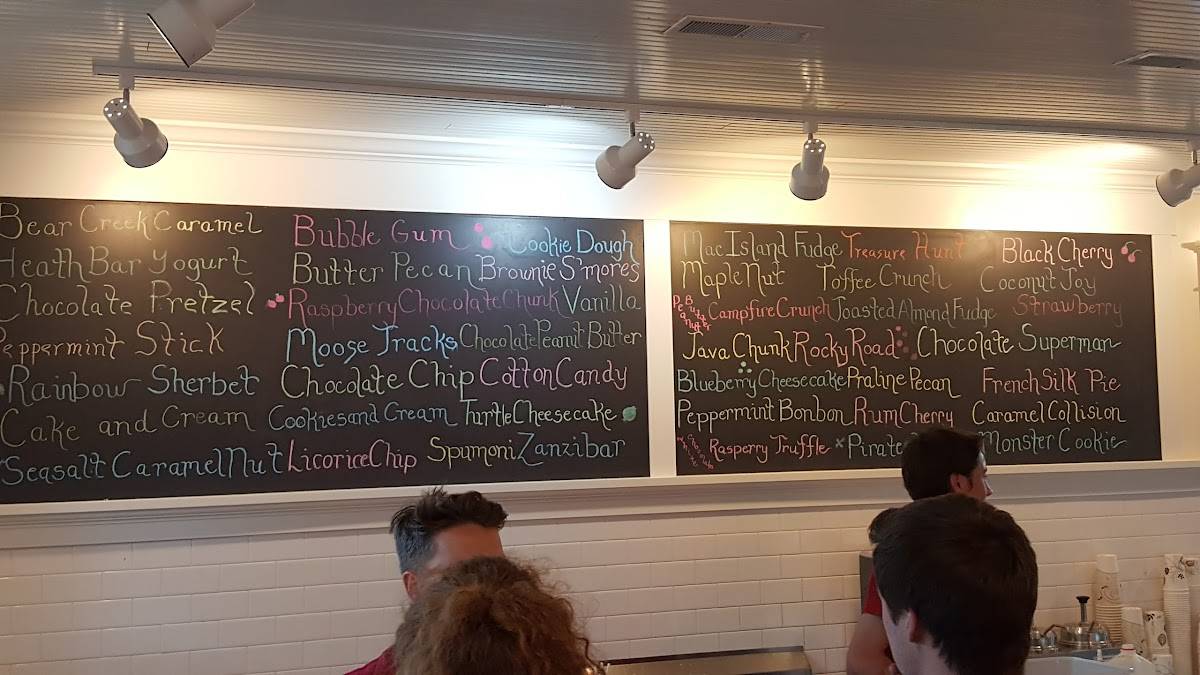 Bear Creek Caramel
Heath Bar Yogurt
Chocolate Pretzel
Peppermint Stick
Rainbow Sherbet
Cake and Cream
Seasalt Caramel Nut
Bubble Gum Cookie Dough
Butter Pecan Brownie S'mores
Raspberry Chocolate Chunk Vanilla
Moose Tracks Chocolate Peanut Butter
Chocolate Chip Cotton Candy
Cookies and Cream Turtle Cheesecake
Licorice Chip Spumoni Zanzibar
Mac Island Fudge Treasure Hunt Black Cherry
Maple Nut Toffee Crunch Coconut Joy
Campfire Crunch Toasted Almond Fudge Strawberry
Java Chunk Rocky Road Chocolate Superman
Blueberry Cheesecake Praline Pecan French Silk Pie
Peppermint Bonbon Rum Cherry Caramel Collision
Rasperry Truffle Pirate Monster Cookie